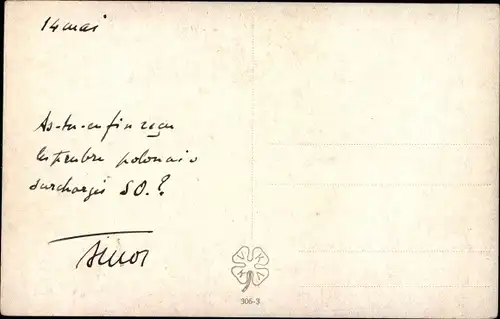 14 mai
As-tu enfin reçu
les timbres polonais
surchargés SO.?
KVKV
306-3